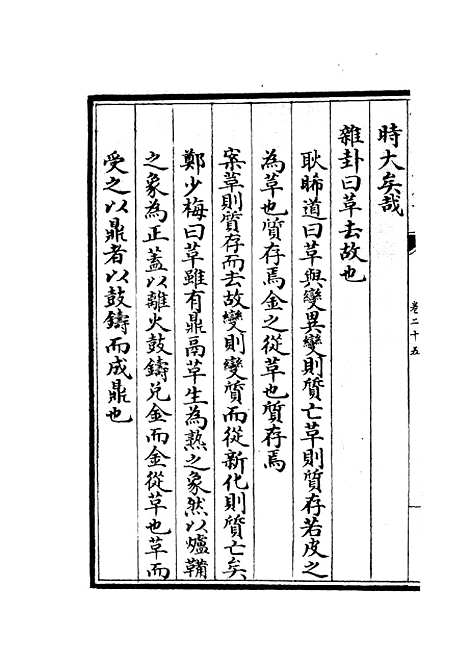 時大矣哉
雜卦曰革去故也
耿睎道曰革與變異變則質亡革則質存若皮之
為革也質存焉金之從革也質存焉
案革則質存而去故變則變質而從新化則質亡矣
鄭少梅曰革雖有鼎鬲革生為熟之象然以爐鞴
之象為正蓋以離火鼓鑄兌金而金從革也革而
受之以鼎者以鼓鑄而成鼎也
卷二十五